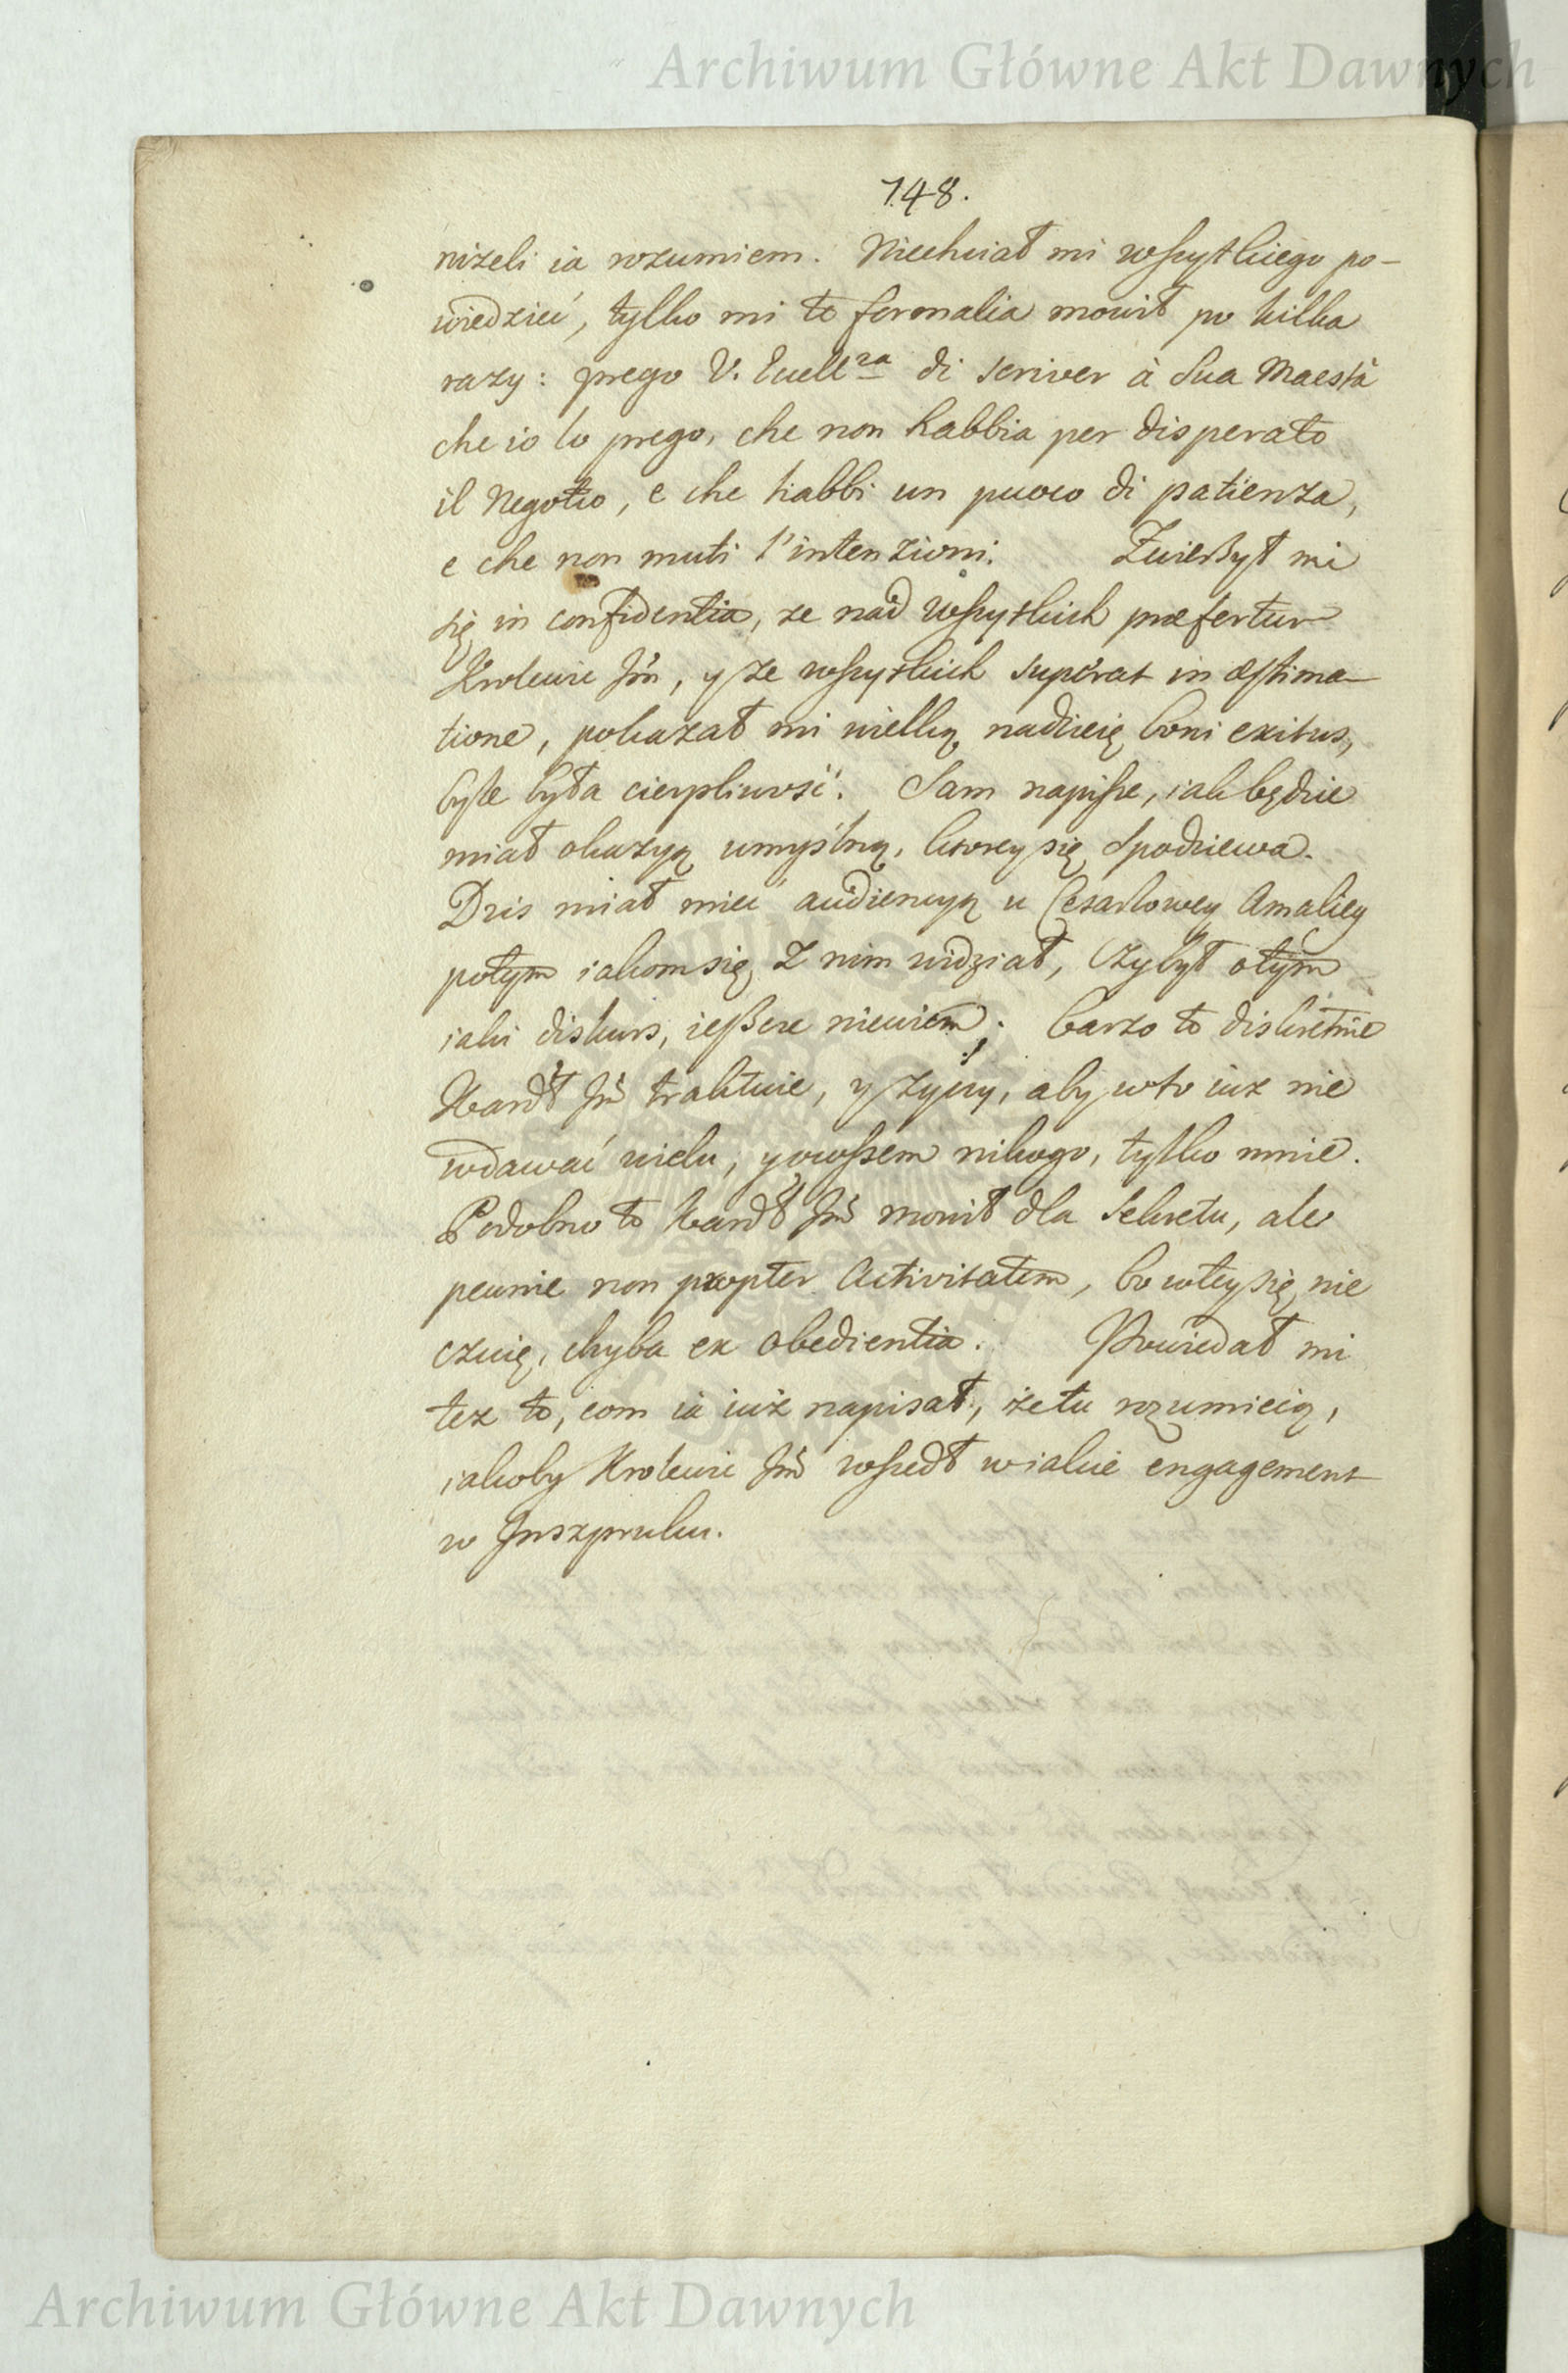 Archiwum Główne Akt Dawnych
148.
niżeli ia rozumiem. Niechciał mi wszytkiego po-
wiedzieć, tylko mi te formalia mowił po kilka
razy: prego V. Eccell<sup>za</sup> di scriver à Sua Maestà
che io lo prego, che non habbia per disperato
il Negotio, e che habbi un puoco di patienza,
e che non muti l'intenzioni. Zwierzył mi
się in confidentia, ze nad wszytkich præfertur
Krolewic Jm̃, y ze wszytkich superat in æstima-
tione, pokazał mi wielką nadzieię boni exitus,
byle była cierpliwość. Sam napisze, iak będzie
miał okazyą umyślną, ktorey się spodziewa.
Dzis miał mieć audiencyą u Cesarzowey Amaliey
potym iakom się z nim widział, czy był o tym
iaki diskurs, ieszcze niewiem; barzo to diskretnie
Kardł Jm̃ traktuie, y zyczy, aby w to iuz nie
wdawać wielu, y owszem nikogo, tylko mnie.
Podobno to Kardł Jm̃ mowił dla sekretu, ale
pewnie non propter Activitatem, bo w tey się nie
czuię, chyba ex obedientia. Powiedał mi
tez to, com ia iuż napisał, że tu rozumieią,
iakoby Krolewic Jm̃ wszedł w iakie engagement
w Inszpruku.
Archiwum Główne Akt Dawnych